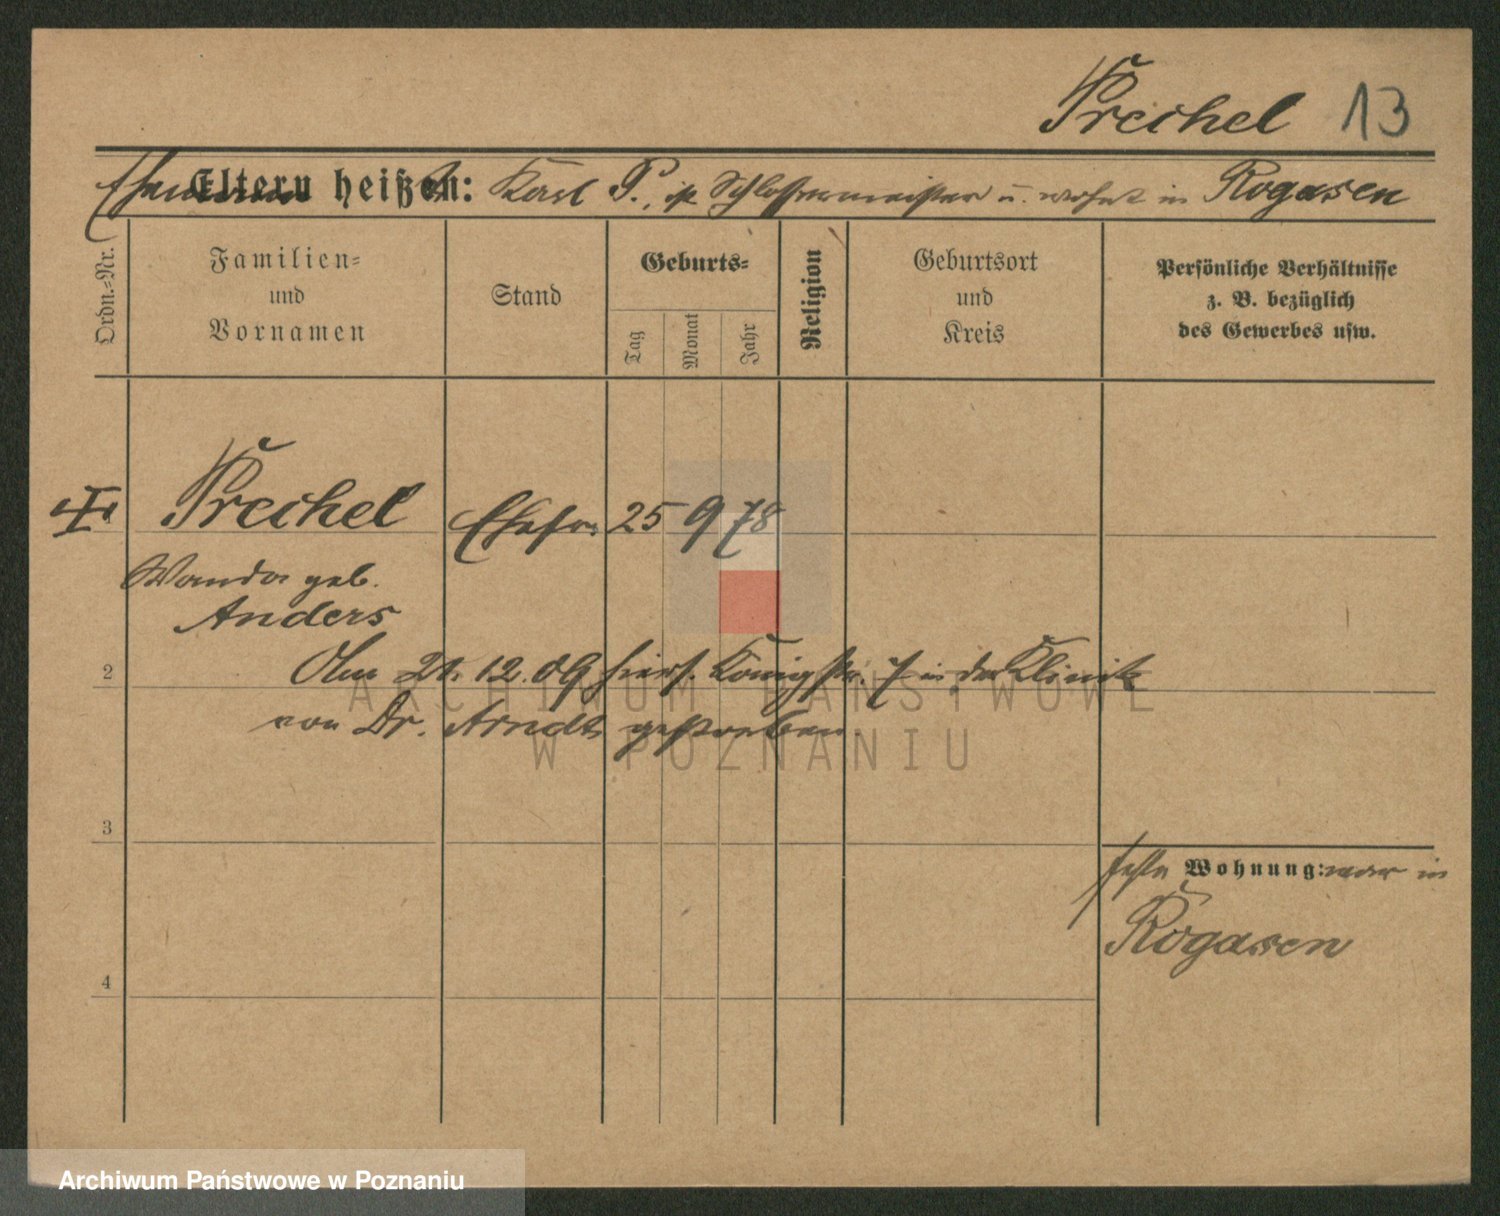 Prechel 13
Ehemann Eltern heißen: Karl P., ist Schlossermeister u. wohnt in Rogasen
Ordn.-Nr.
Familien-
und
Vornamen
Stand
Geburts-
Tag
Monat
Jahr
Religion
Geburtsort
und
Kreis
Persönliche Verhältnisse
z. B. bezüglich
des Gewerbes usw.
Prechel Ehefr. 25 9 78
Wanda geb.
Anders
2 Am 21. 12. 09 hiers. Königstr. 7 in der Klinik
von Dr. Arndt gestorben
ARCHIWUM PAŃSTWOWE
W POZNANIU
3
feste Wohnung: war in
Rogasen
4
Archiwum Państwowe w Poznaniu